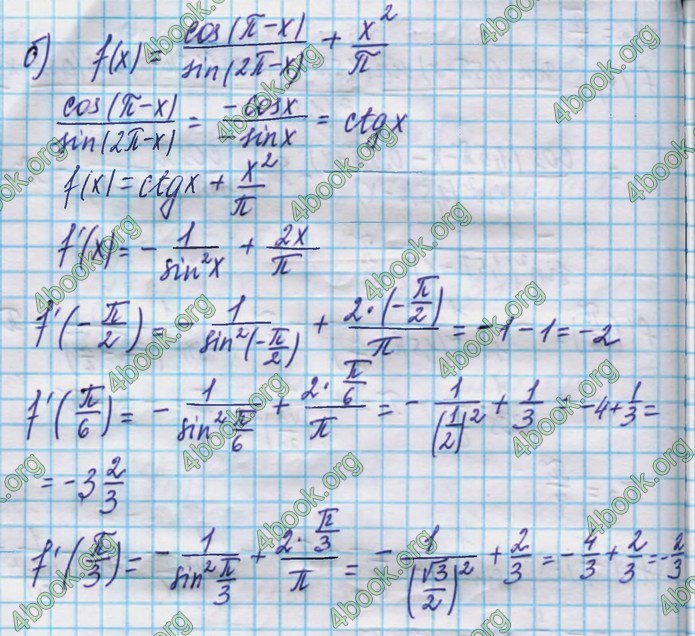 б) f(x) = cos(π-x)/sin(2π-x) + x²/π
cos(π-x)/sin(2π-x) = -cosx/-sinx = ctgx
f(x) = ctgx + x²/π
f'(x) = - 1/sin²x + 2x/π
f'(-π/2) = - 1/sin²(-π/2) + 2·(-π/2)/π = -1-1 = -2
f'(π/6) = - 1/sin² π/6 + 2·π/6/π = - 1/(1/2)² + 1/3 = -4+1/3 =
= -3 2/3
f'(π/3) = - 1/sin² π/3 + 2·π/3/π = - 1/(√3/2)² + 2/3 = -4/3 + 2/3 = -2/3
4book.org